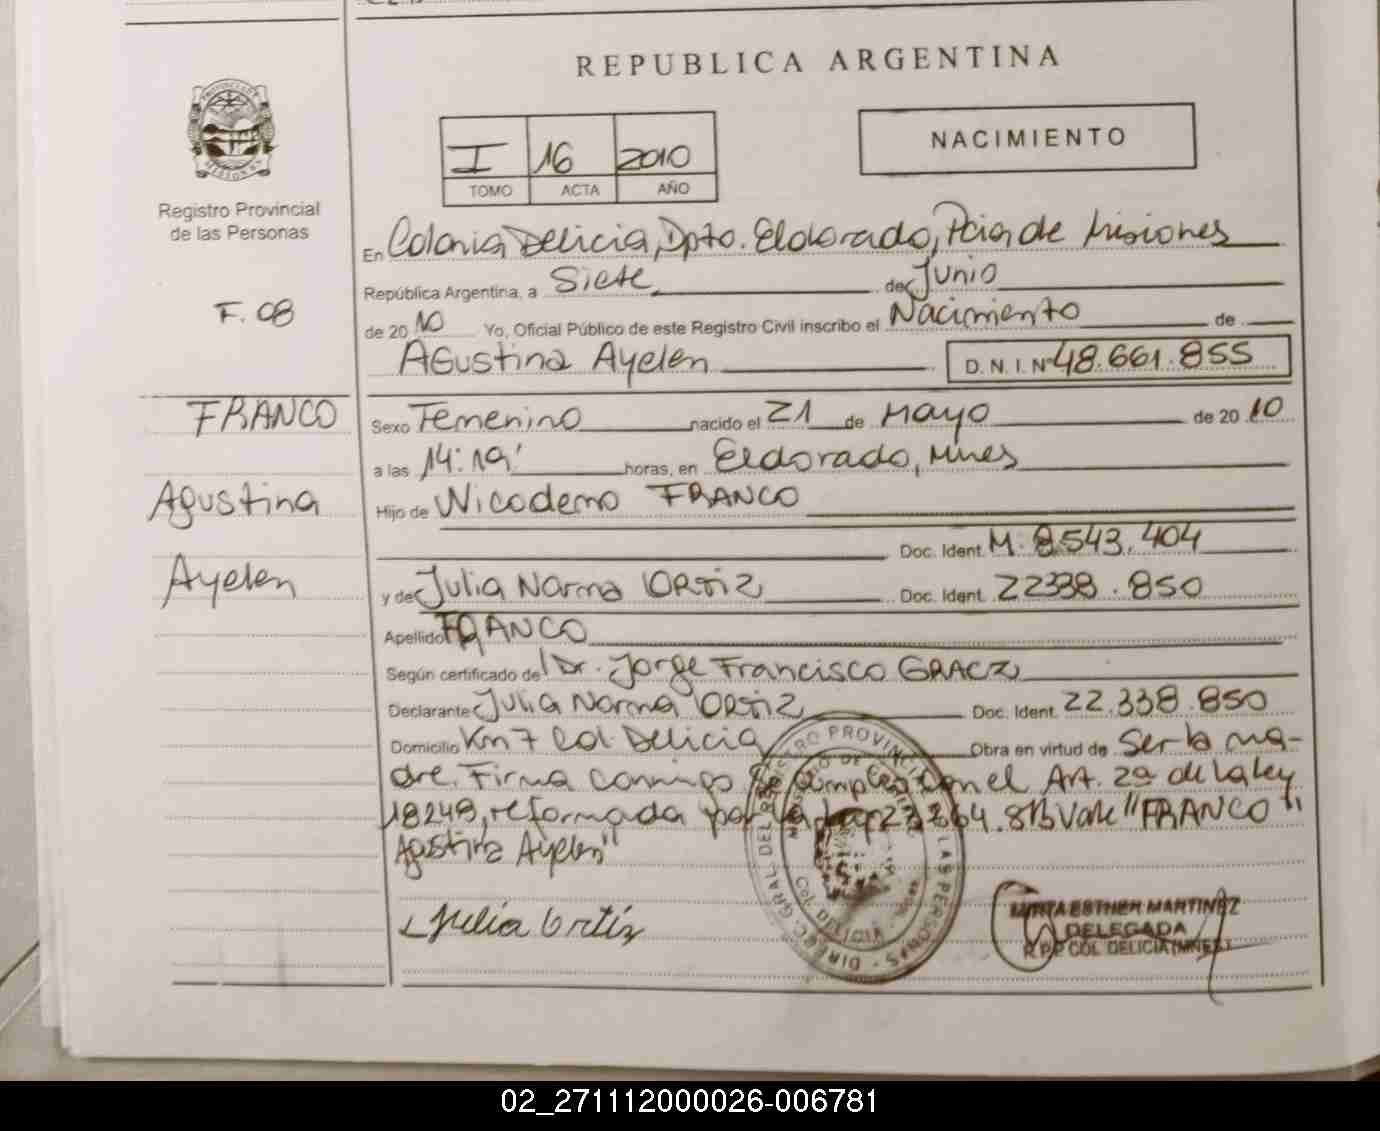 REPUBLICA ARGENTINA
I 16 2010
TOMO ACTA AÑO
NACIMIENTO
Registro Provincial
de las Personas
F. 08
FRANCO
Agustina
Ayelen
En Colonia Delicia, Dpto. Eldorado, Pcia de Misiones
República Argentina, a Siete de Junio
de 2010 Yo, Oficial Público de este Registro Civil inscribo el Nacimiento de
Agustina Ayelen D.N.I. Nº 48.661.855
Sexo Femenino nacido el 21 de Mayo de 2010
a las 14:19' horas, en Eldorado, Mnes
Hijo de Nicodemo FRANCO
Doc. Ident. M. 8.543.404
y de Julia Norma ORTIZ Doc. Ident. 22338.850
Apellido FRANCO
Según certificado de Dr. Jorge Francisco GRACZ
Declarante Julia Norma ORTIZ Doc. Ident. 22.338.850
Domicilio Km 7 Col. Delicia Obra en virtud de Ser la ma-
dre. Firma conmigo Se cumple con el Art. 2º de la ley
18248, reformada por la ley 23264. S/B Vale "FRANCO"
Agustina Ayelen"
Julia Ortíz
DIREC. GRAL. DEL REGISTRO PROVINCIAL DE LAS PERSONAS
COL. DELICIA
MIRTA ESTHER MARTINEZ
DELEGADA
R.P.P COL DELICIA (MNES)
02_271112000026-006781